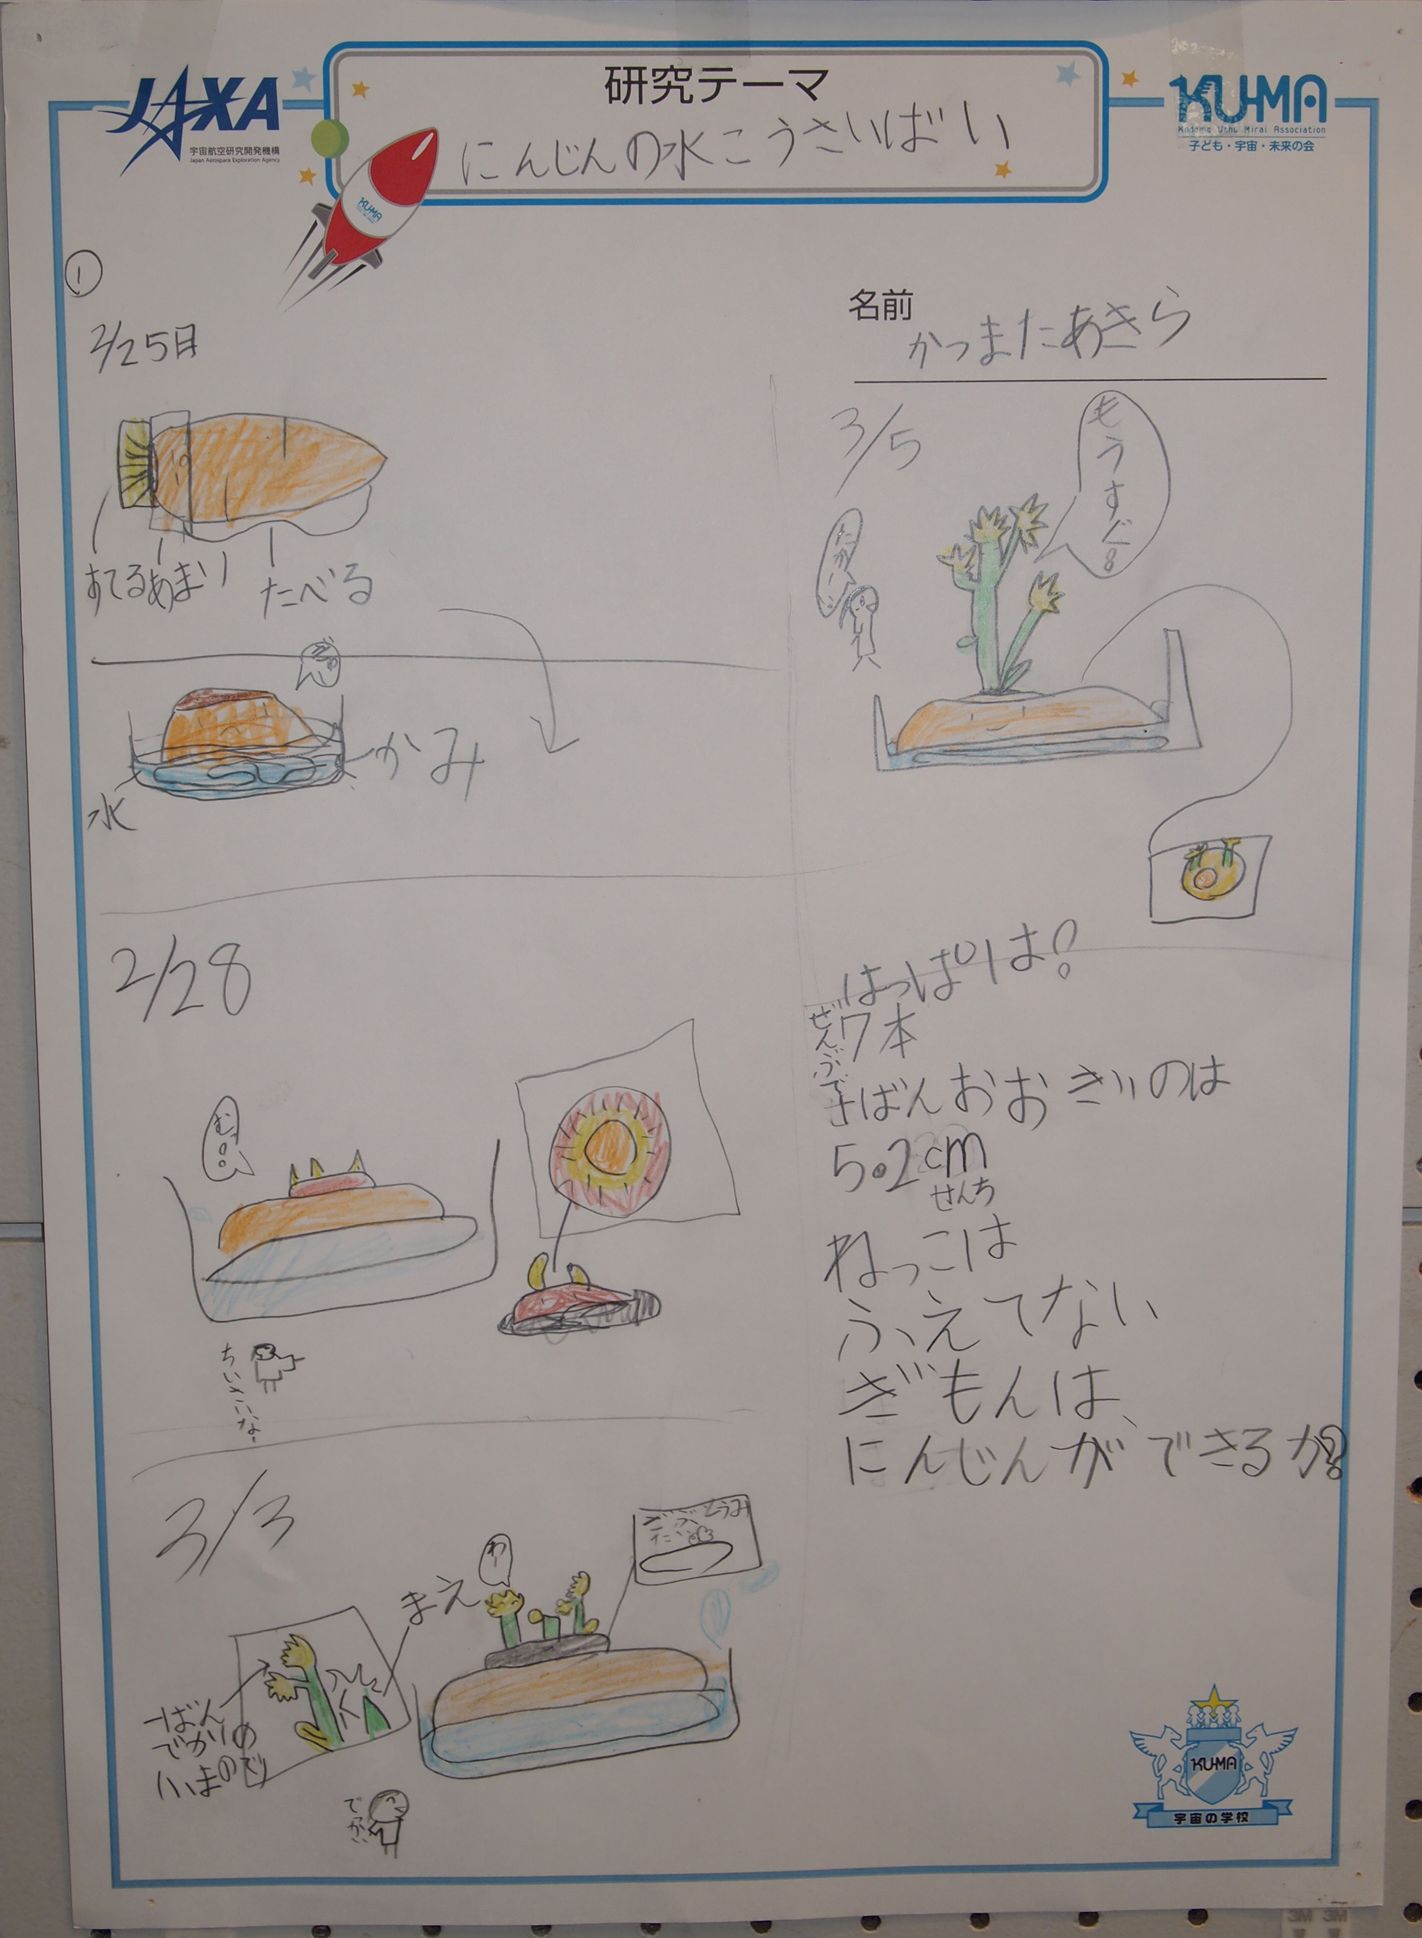 JAXA
宇宙航空研究開発機構
Japan Aerospace Exploration Agency
研究テーマ
にんじんの水こうさいばい
KUMA
Kodomo Uchu Mirai Association
子ども・宇宙・未来の会
KUMA
①
2/25日
すてる
あまり
たべる
かみ
水
2/28
ちいさいなー
3/3
まえ
わー
一ばん
でかいの
(いまので)
でかい
名前
かつまたあきら
3/5
もうすぐ
はっぱは?
ぜんぶで
7本
1ばんおおきいのは
5.2cm
せんち
ねっこは
ふえてない
ぎもんは、
にんじんができるか?
KUMA
宇宙の学校
3M
3M